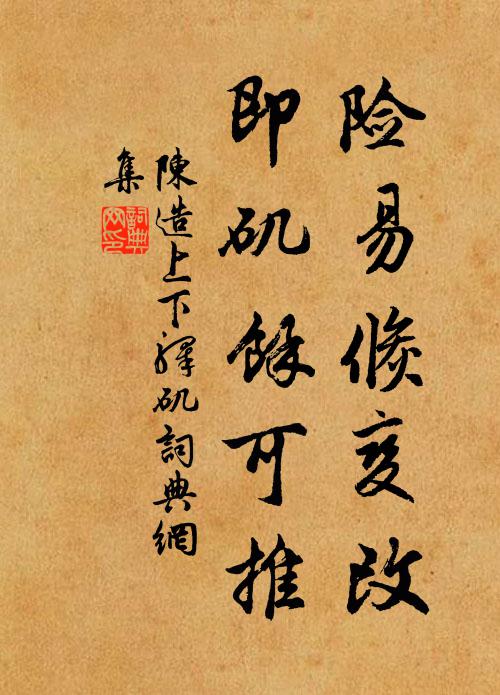 险易倏变改
即矶馀可推
陳造上下驛矶詞典網
集
詞典网印